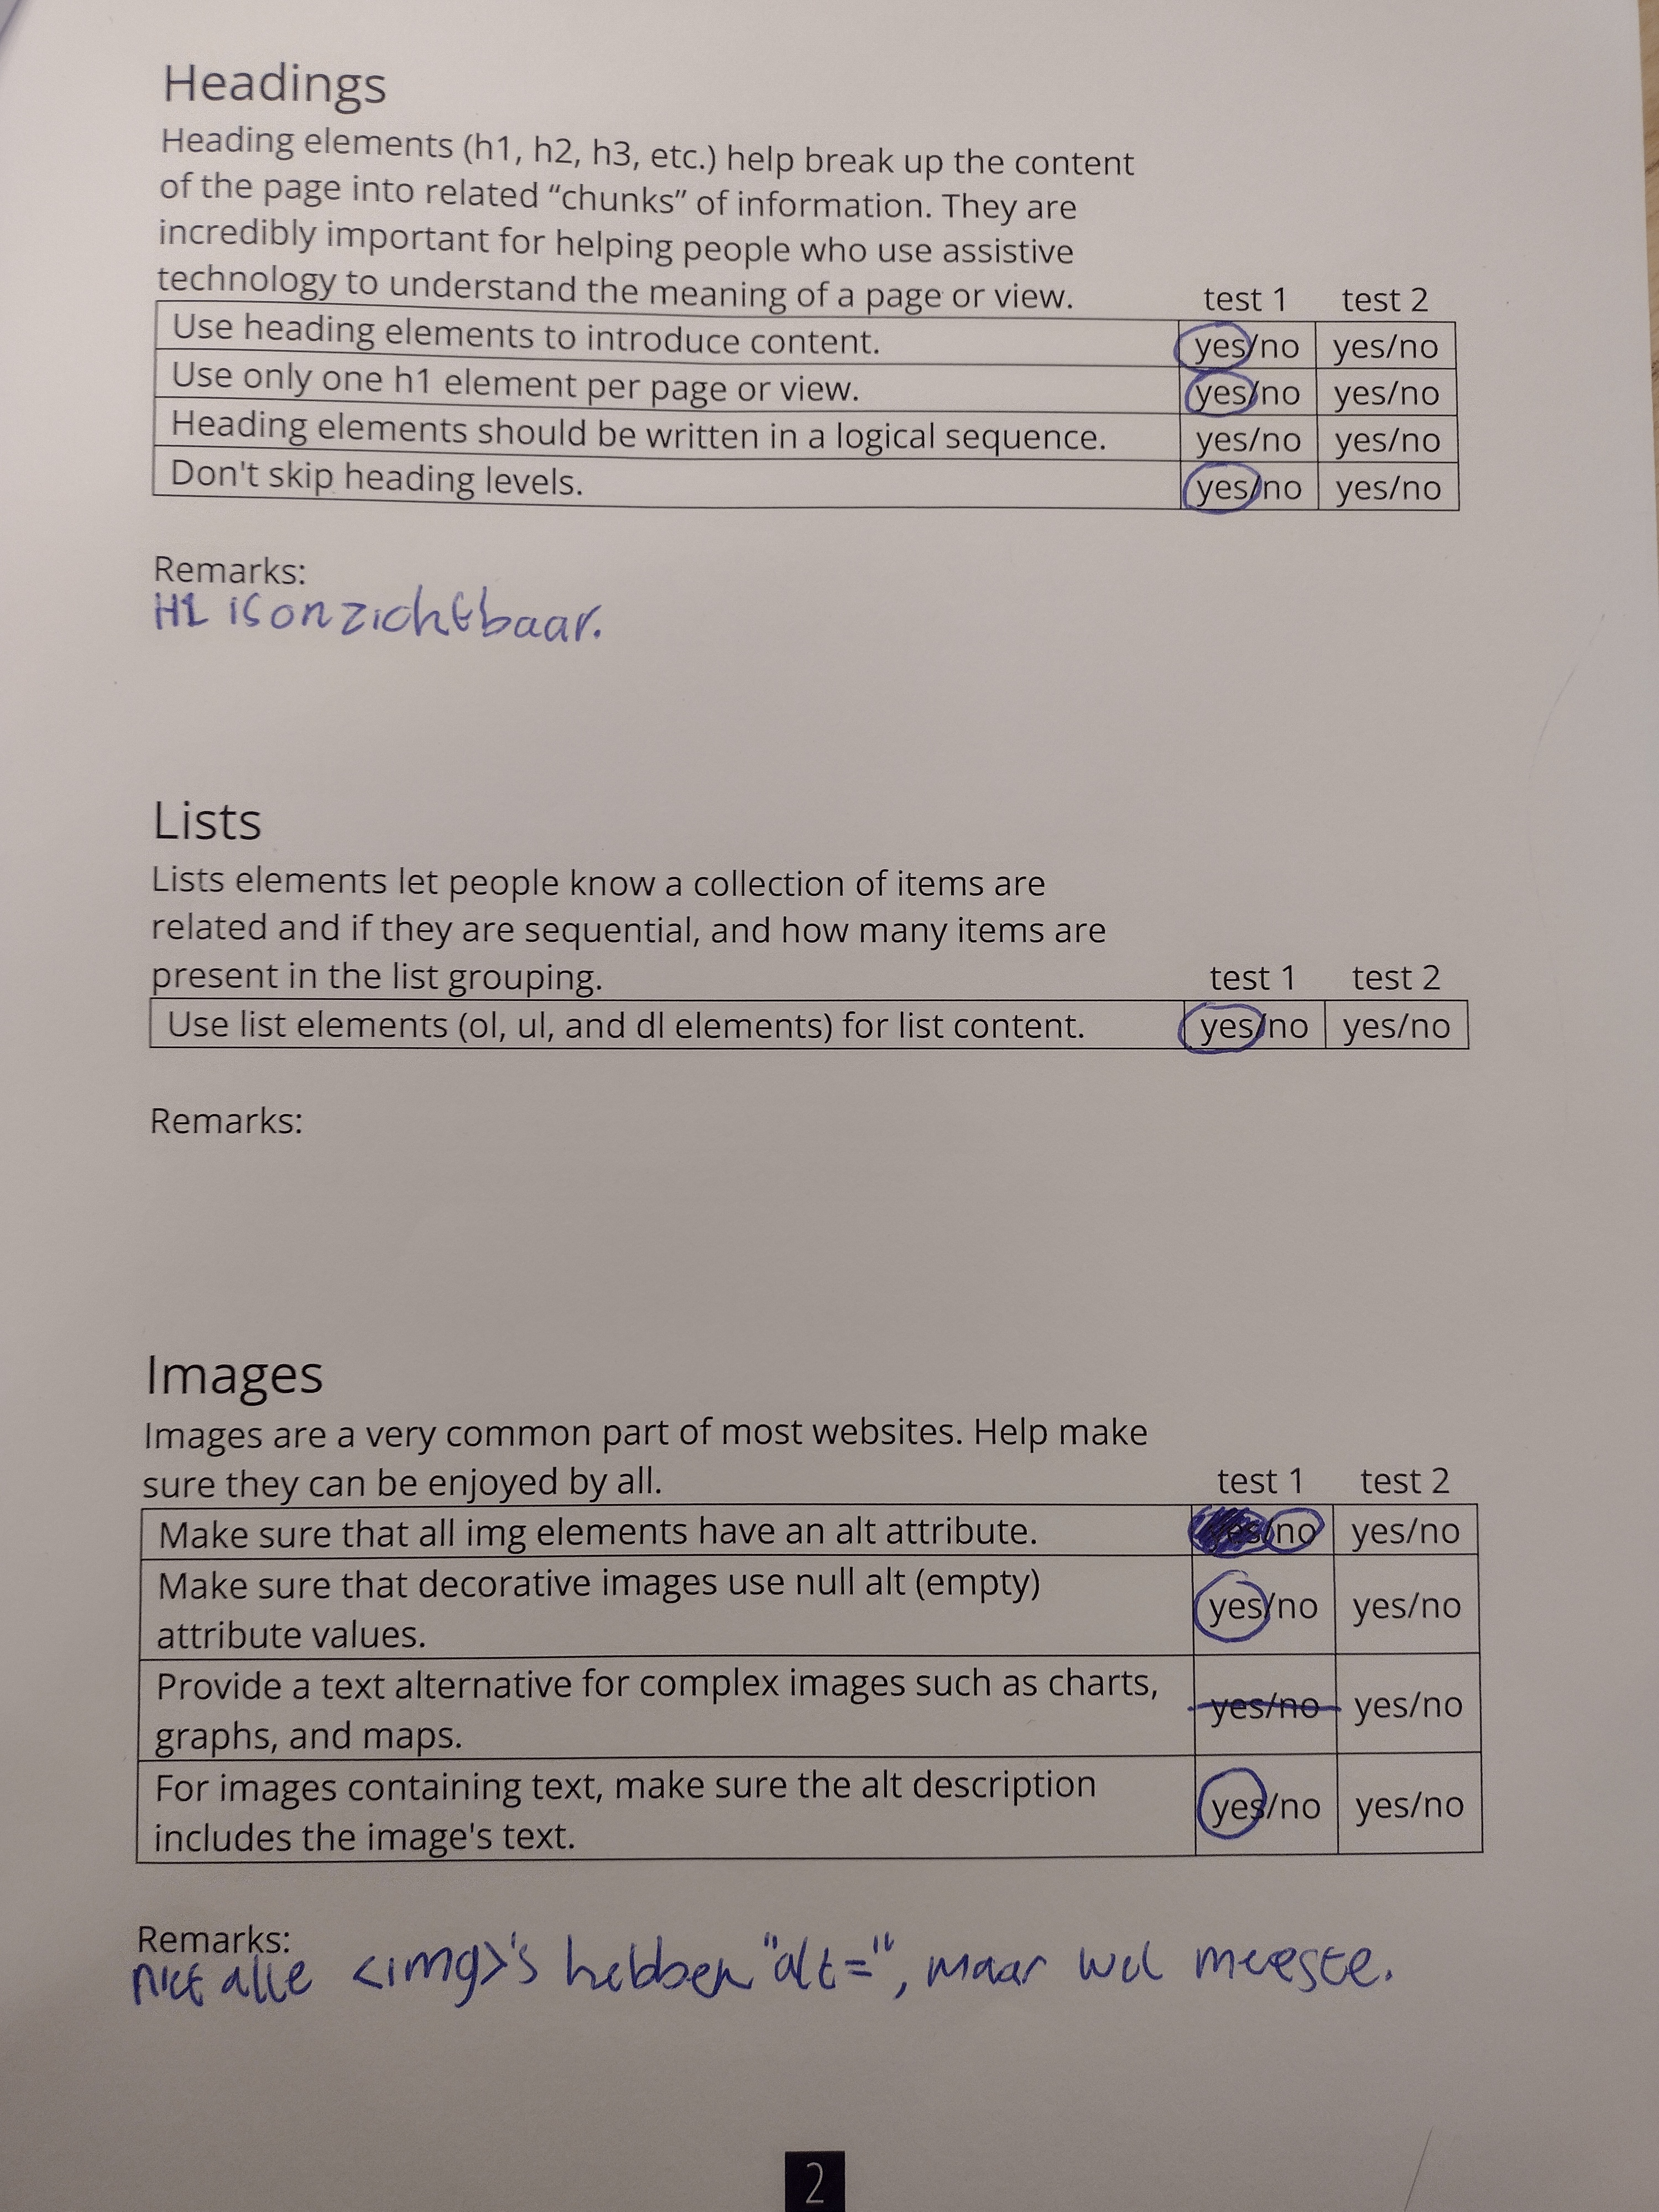 Headings
Heading elements (h1, h2, h3, etc.) help break up the content
of the page into related “chunks” of information. They are
incredibly important for helping people who use assistive
technology to understand the meaning of a page or view. test 1 test 2
Use heading elements to introduce content. yes/no yes/no
Use only one h1 element per page or view. yes/no yes/no
Heading elements should be written in a logical sequence. yes/no yes/no
Don't skip heading levels. yes/no yes/no
Remarks:
H1 is onzichtbaar.
Lists
Lists elements let people know a collection of items are
related and if they are sequential, and how many items are
present in the list grouping. test 1 test 2
Use list elements (ol, ul, and dl elements) for list content. yes/no yes/no
Remarks:
Images
Images are a very common part of most websites. Help make
sure they can be enjoyed by all. test 1 test 2
Make sure that all img elements have an alt attribute. yes/no yes/no
Make sure that decorative images use null alt (empty)
attribute values. yes/no yes/no
Provide a text alternative for complex images such as charts,
graphs, and maps. yes/no yes/no
For images containing text, make sure the alt description
includes the image's text. yes/no yes/no
Remarks:
niet alle <img>'s hebben "alt=", maar wel meeste.
2